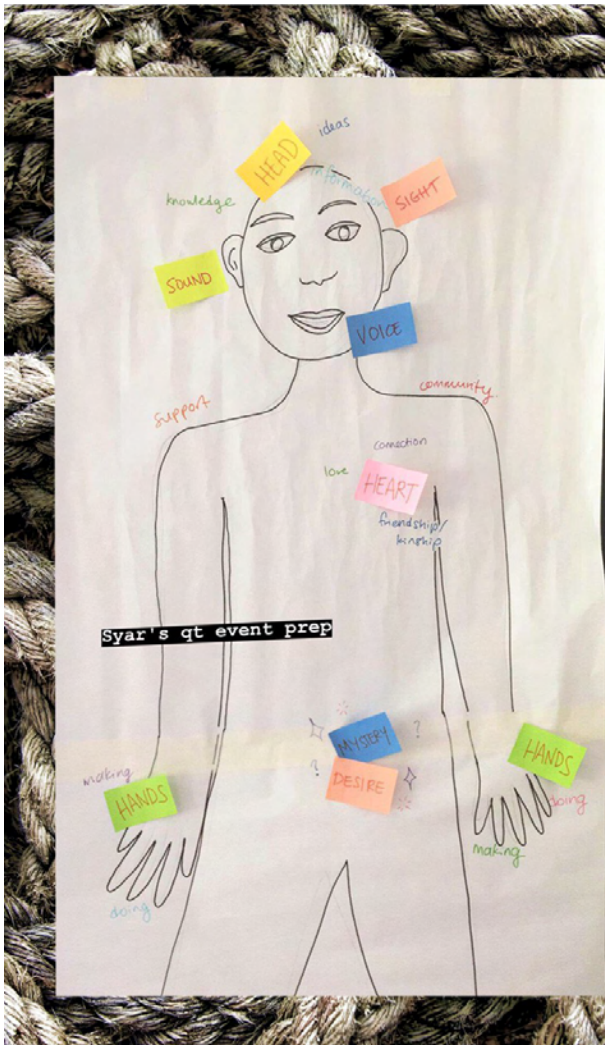 ideas
HEAD
information
knowledge
SIGHT
SOUND
VOICE
community.
support
connection
love
HEART
friendship/
kinship
Syar's qt event prep
MYSTERY
?
?
DESIRE
HANDS
making
HANDS
doing
making
doing